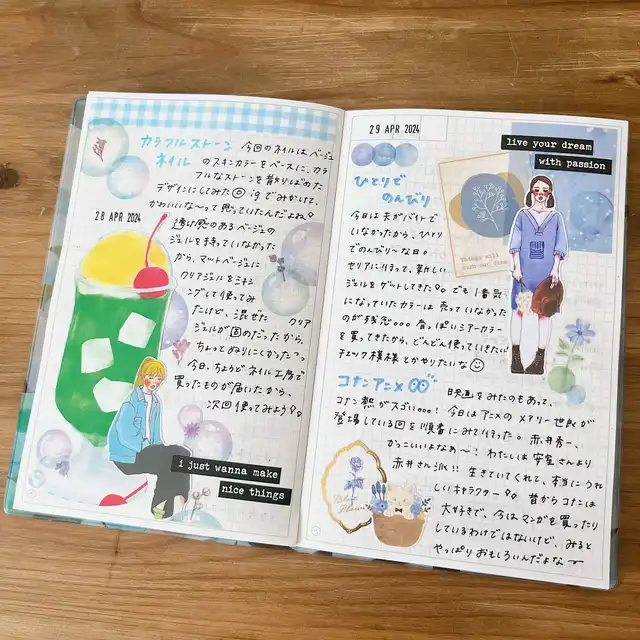 カラフルストーン
ネイル
今回のネイルはベージュ
のスキンカラーをベースに、カラ
フルなストーンを散りばめた
デザインにしてみた☺ igでみかけて、
かわいいな〜って思っていたんだよね♀
28 APR 2024
透け感のあるベージュの
ジェルを持っていなかった
から、マットベージュに
クリアジェルをミキシ
ングして使ってみ
たけど、混ぜた クリア
ジェルが固めだったから、
ちょっとぬりにくかったっ
今日、ちょうどネイル工房で
買ったものが届いたから、
次回使ってみよう
i just wanna make
nice things
29 APR 2024
live your dream
with passion
ひとりで
のんびり
今日は夫がバイトで
いなかったから、ひとり
でのんびり〜な日。
セリアに行って、新しい
ジェルをゲットしてきた でも1番気
になっていたカラーは売っていなかった
のが残念。。。春っぽいシアーカラー
を買ってきたから、どんどん使っていきたい
チェック模様とかやりたいな☺
Things will
work out fine
コナンアニメ
映画をみたのもあって、
コナン熱がスゴい。。。! 今日はアニメのメアリー世良が
登場している回を順番にみて行った。赤井秀一、
かっこいいよなぁ〜、わたしは安室さんより
赤井さん派!! 生きていてくれて、本当にうれ
しいキャラクター 昔からコナンは
大好きで、今はマンガを買ったり
しているわけではないけど、みると
やっぱりおもしろいんだよな〜